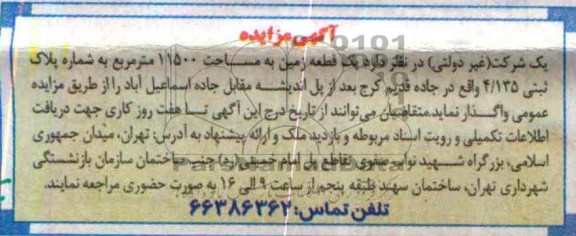 آگهی مزایده
یک شرکت(غیر دولتی) در نظر دارد یک قطعه زمین به مساحت ۱۱۵۰۰ مترمربع به شماره پلاک
ثبتی ۴/۱۳۵ واقع در جاده قدیم کرج بعد از پل اندیشه مقابل جاده اسماعیل آباد را از طریق مزایده
عمومی واگذار نماید.متقاضیان می‌توانند از تاریخ درج این آگهی تا هفت روز کاری جهت دریافت
اطلاعات تکمیلی و رویت اسناد مربوطه و بازدید ملک و ارائه پیشنهاد به آدرس: تهران، میدان جمهوری
اسلامی، بزرگراه شهید نواب صفوی تقاطع پل امام خمینی(ره) جنب ساختمان سازمان بازنشستگی
شهرداری تهران، ساختمان سهند طبقه پنجم از ساعت ۹ الی ۱۶ به صورت حضوری مراجعه نمایند.
تلفن تماس: ۶۶۳۸۶۳۶۲